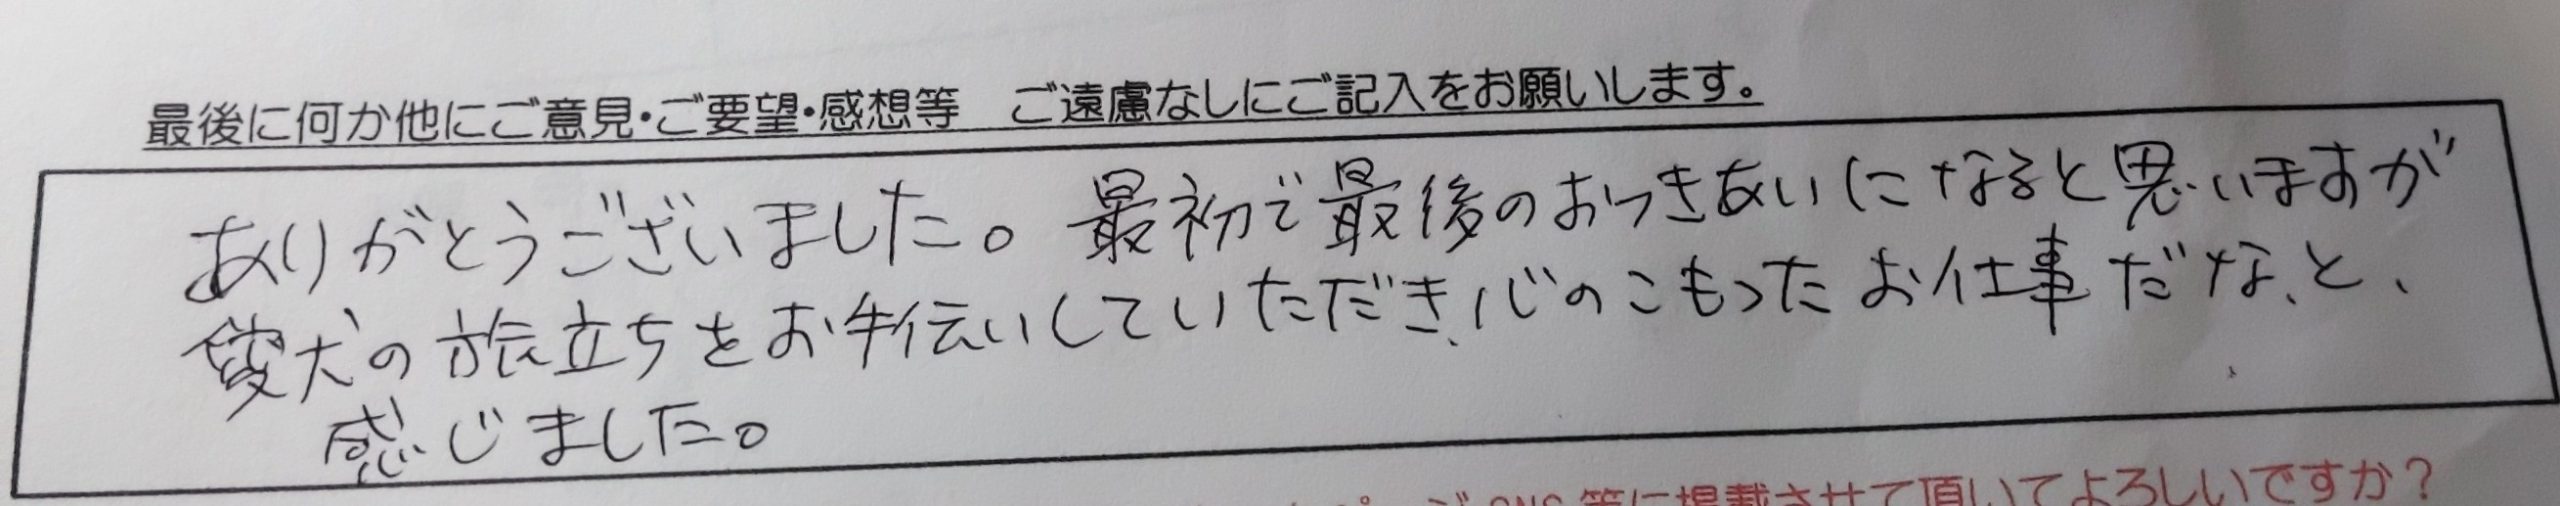 最後に何か他にご意見・ご要望・感想等　ご遠慮なしにご記入をお願いします。
ありがとうございました。最初で最後のおつきあいになると思いますが
愛犬の旅立ちをお手伝いしていただき、心のこもったお仕事だな、と、
感じました。
等に掲載させて頂いてよろしいですか？